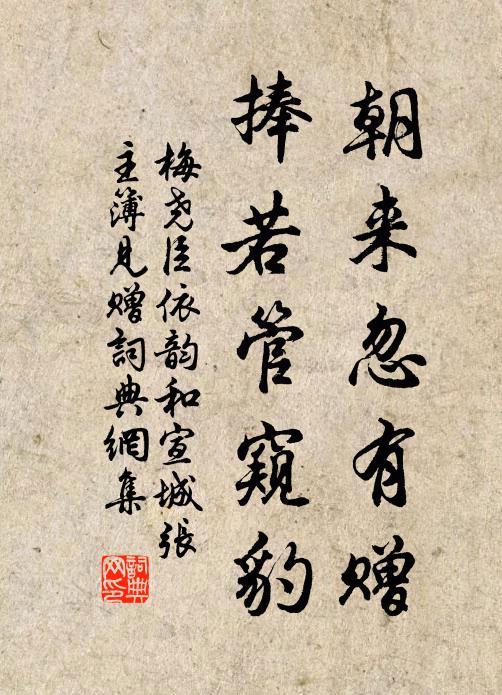 朝来忽有赠
捧若管窥豹
梅尧臣依韵和宣城張
主簿見赠詞典網集
詞典
网印